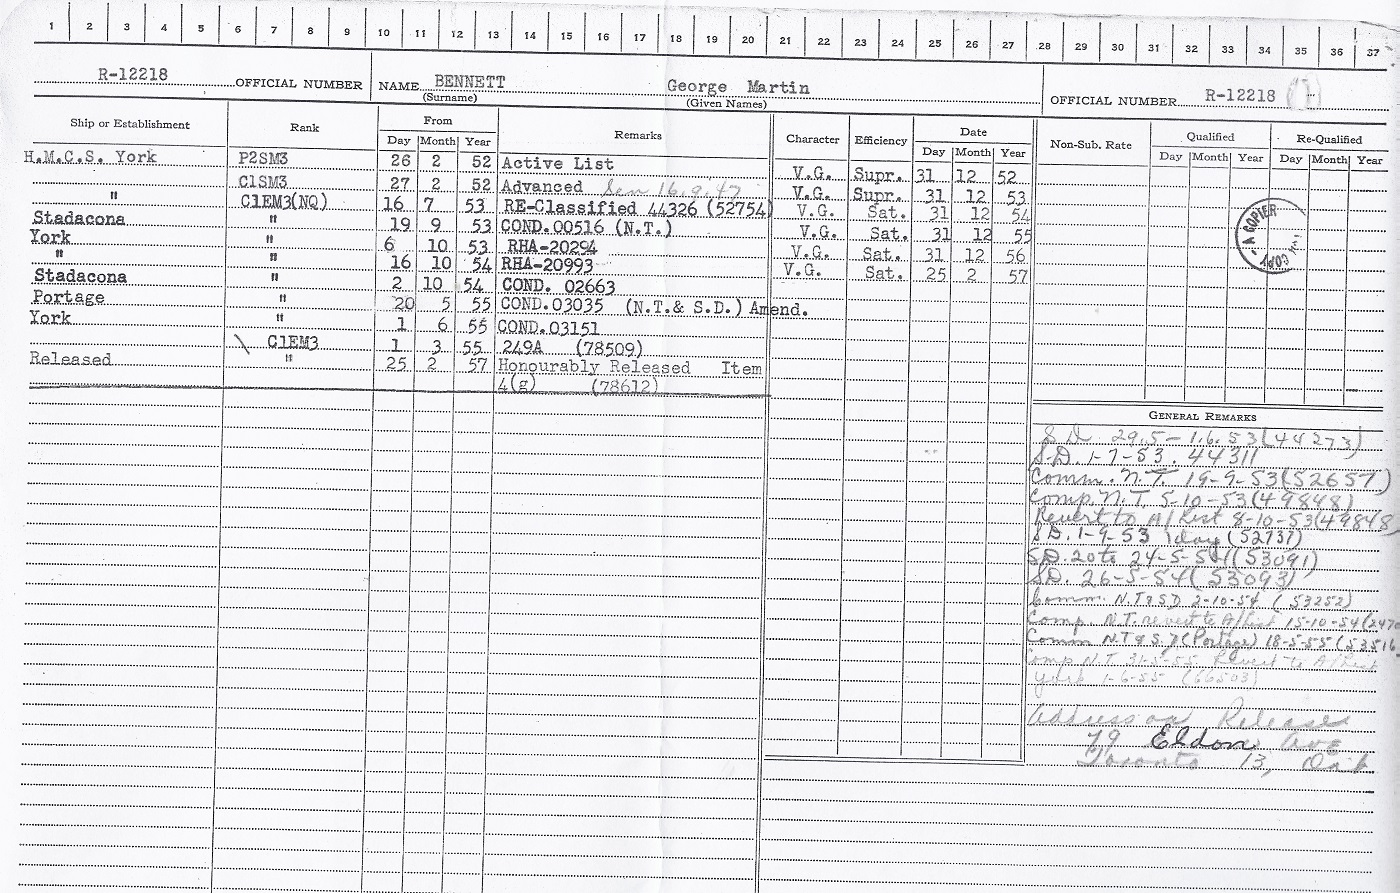 1 2 3 4 5 6 7 8 9 10 11 12 13 14 15 16 17 18 19 20 21 22 23 24 25 26 27 28 29 30 31 32 33 34 35 36 37
R-12218 OFFICIAL NUMBER NAME BENNETT George Martin OFFICIAL NUMBER R-12218
(Surname) (Given Names)
Ship or Establishment Rank From Remarks Character Efficiency Date Non-Sub. Rate Qualified Re-Qualified
Day Month Year Day Month Year Day Month Year Day Month Year
H.M.C.S. York P2SM3 26 2 52 Active List V.G. Supr. 31 12 52
C1SM3 27 2 52 Advanced Sen 16.9.47 V.G. Supr. 31 12 53
" C1EM3(NQ) 16 7 53 RE-Classified 44326 (52754) V.G. Sat. 31 12 54
Stadacona " 19 9 53 COND.00516 (N.T.) V.G. Sat. 31 12 55
York " 6 10 53 RHA-20294 V.G. Sat. 31 12 56
" " 16 10 54 RHA-20993 V.G. Sat. 25 2 57
Stadacona " 2 10 54 COND. 02663
Portage " 20 5 55 COND.03035 (N.T.& S.D.) Amend.
York " 1 6 55 COND.03151
C1EM3 1 3 55 249A (78509)
Released " 25 2 57 Honourably Released Item
4(g) (78612)
A COPIER
COPY
GENERAL REMARKS
S.D. 29.5-1.6.53(44273)
S.D. 1-7-53. 44311
Comm. N.T. 19-9-53(52657)
Comp. N.T. 5-10-53(49848)
Revert to A/List 8-10-53(49848
S.D. 1-9-53 1 day (52737)
S.D. 20 to 24-5-54(53091)
S.D. 26-5-54(53093)
Comm. N.T & S.D 2-10-54 (53252)
Comp. N.T. revert to A/List 15-10-54(
Comm N.T & S.D (Portage) 18-5-55 (53516
Comp N.T 31-5-55 Revert to A/List
York 1-6-55 (66503)
Address on Release
79 Eldon Ave
Toronto 13, Ont